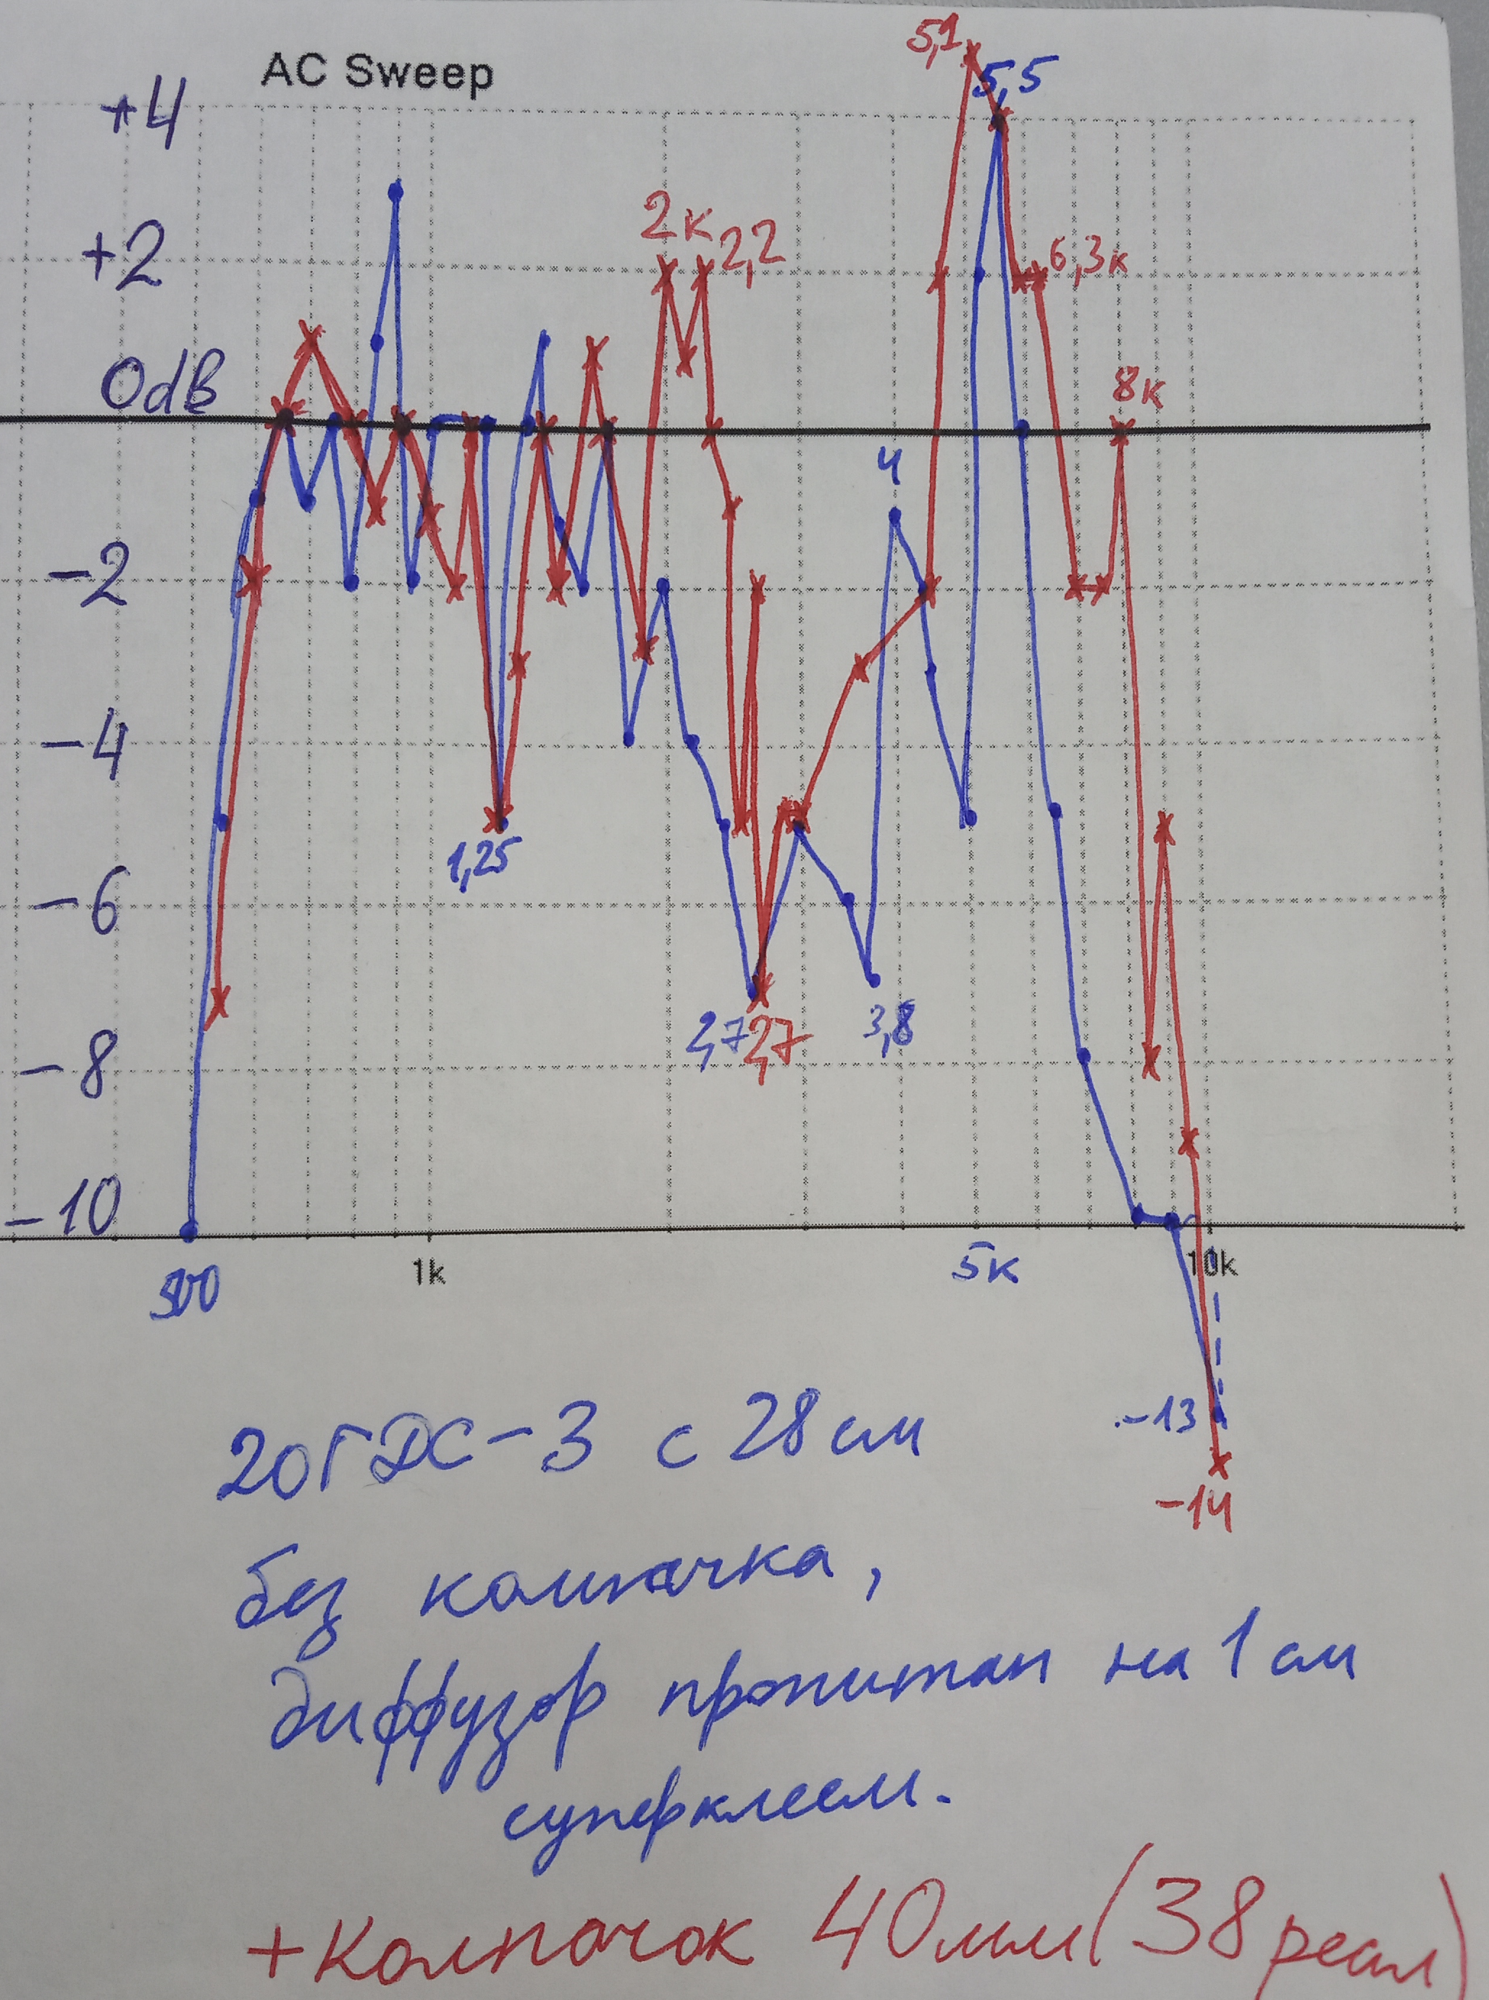 AC Sweep
+4
5,1
5,5
+2
2к
2,2
6,3к
0dB
8к
4
-2
-4
1,25
-6
2,7
2,7
3,8
-8
-10
500
1k
5к
10k
-13
20ГДС-3 с 28см
-14
без колпачка,
диффузор пропитан на 1см
суперклеем.
+Колпачок 40мм(38реал)